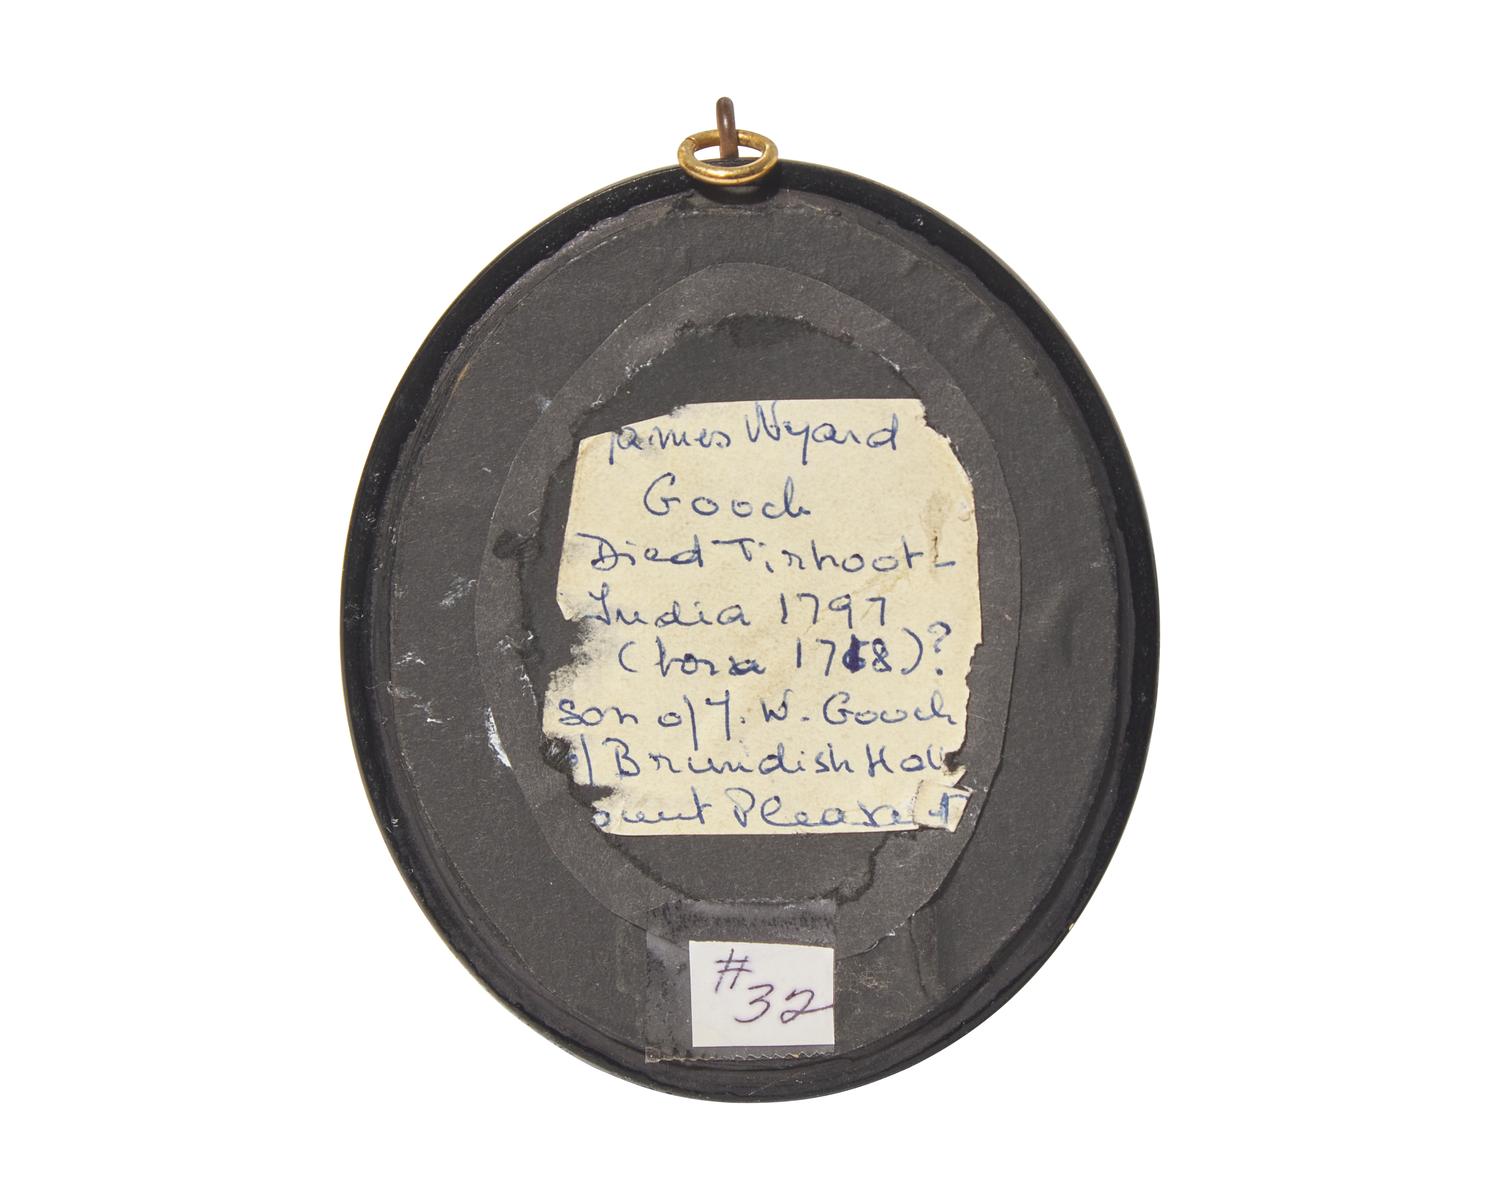 James Wyard
Gooch
Died Tirhoot-
India 1797
(born 1768)?
son of J. W. Gooch
of Brundish Hall
ount Pleasant
#
32